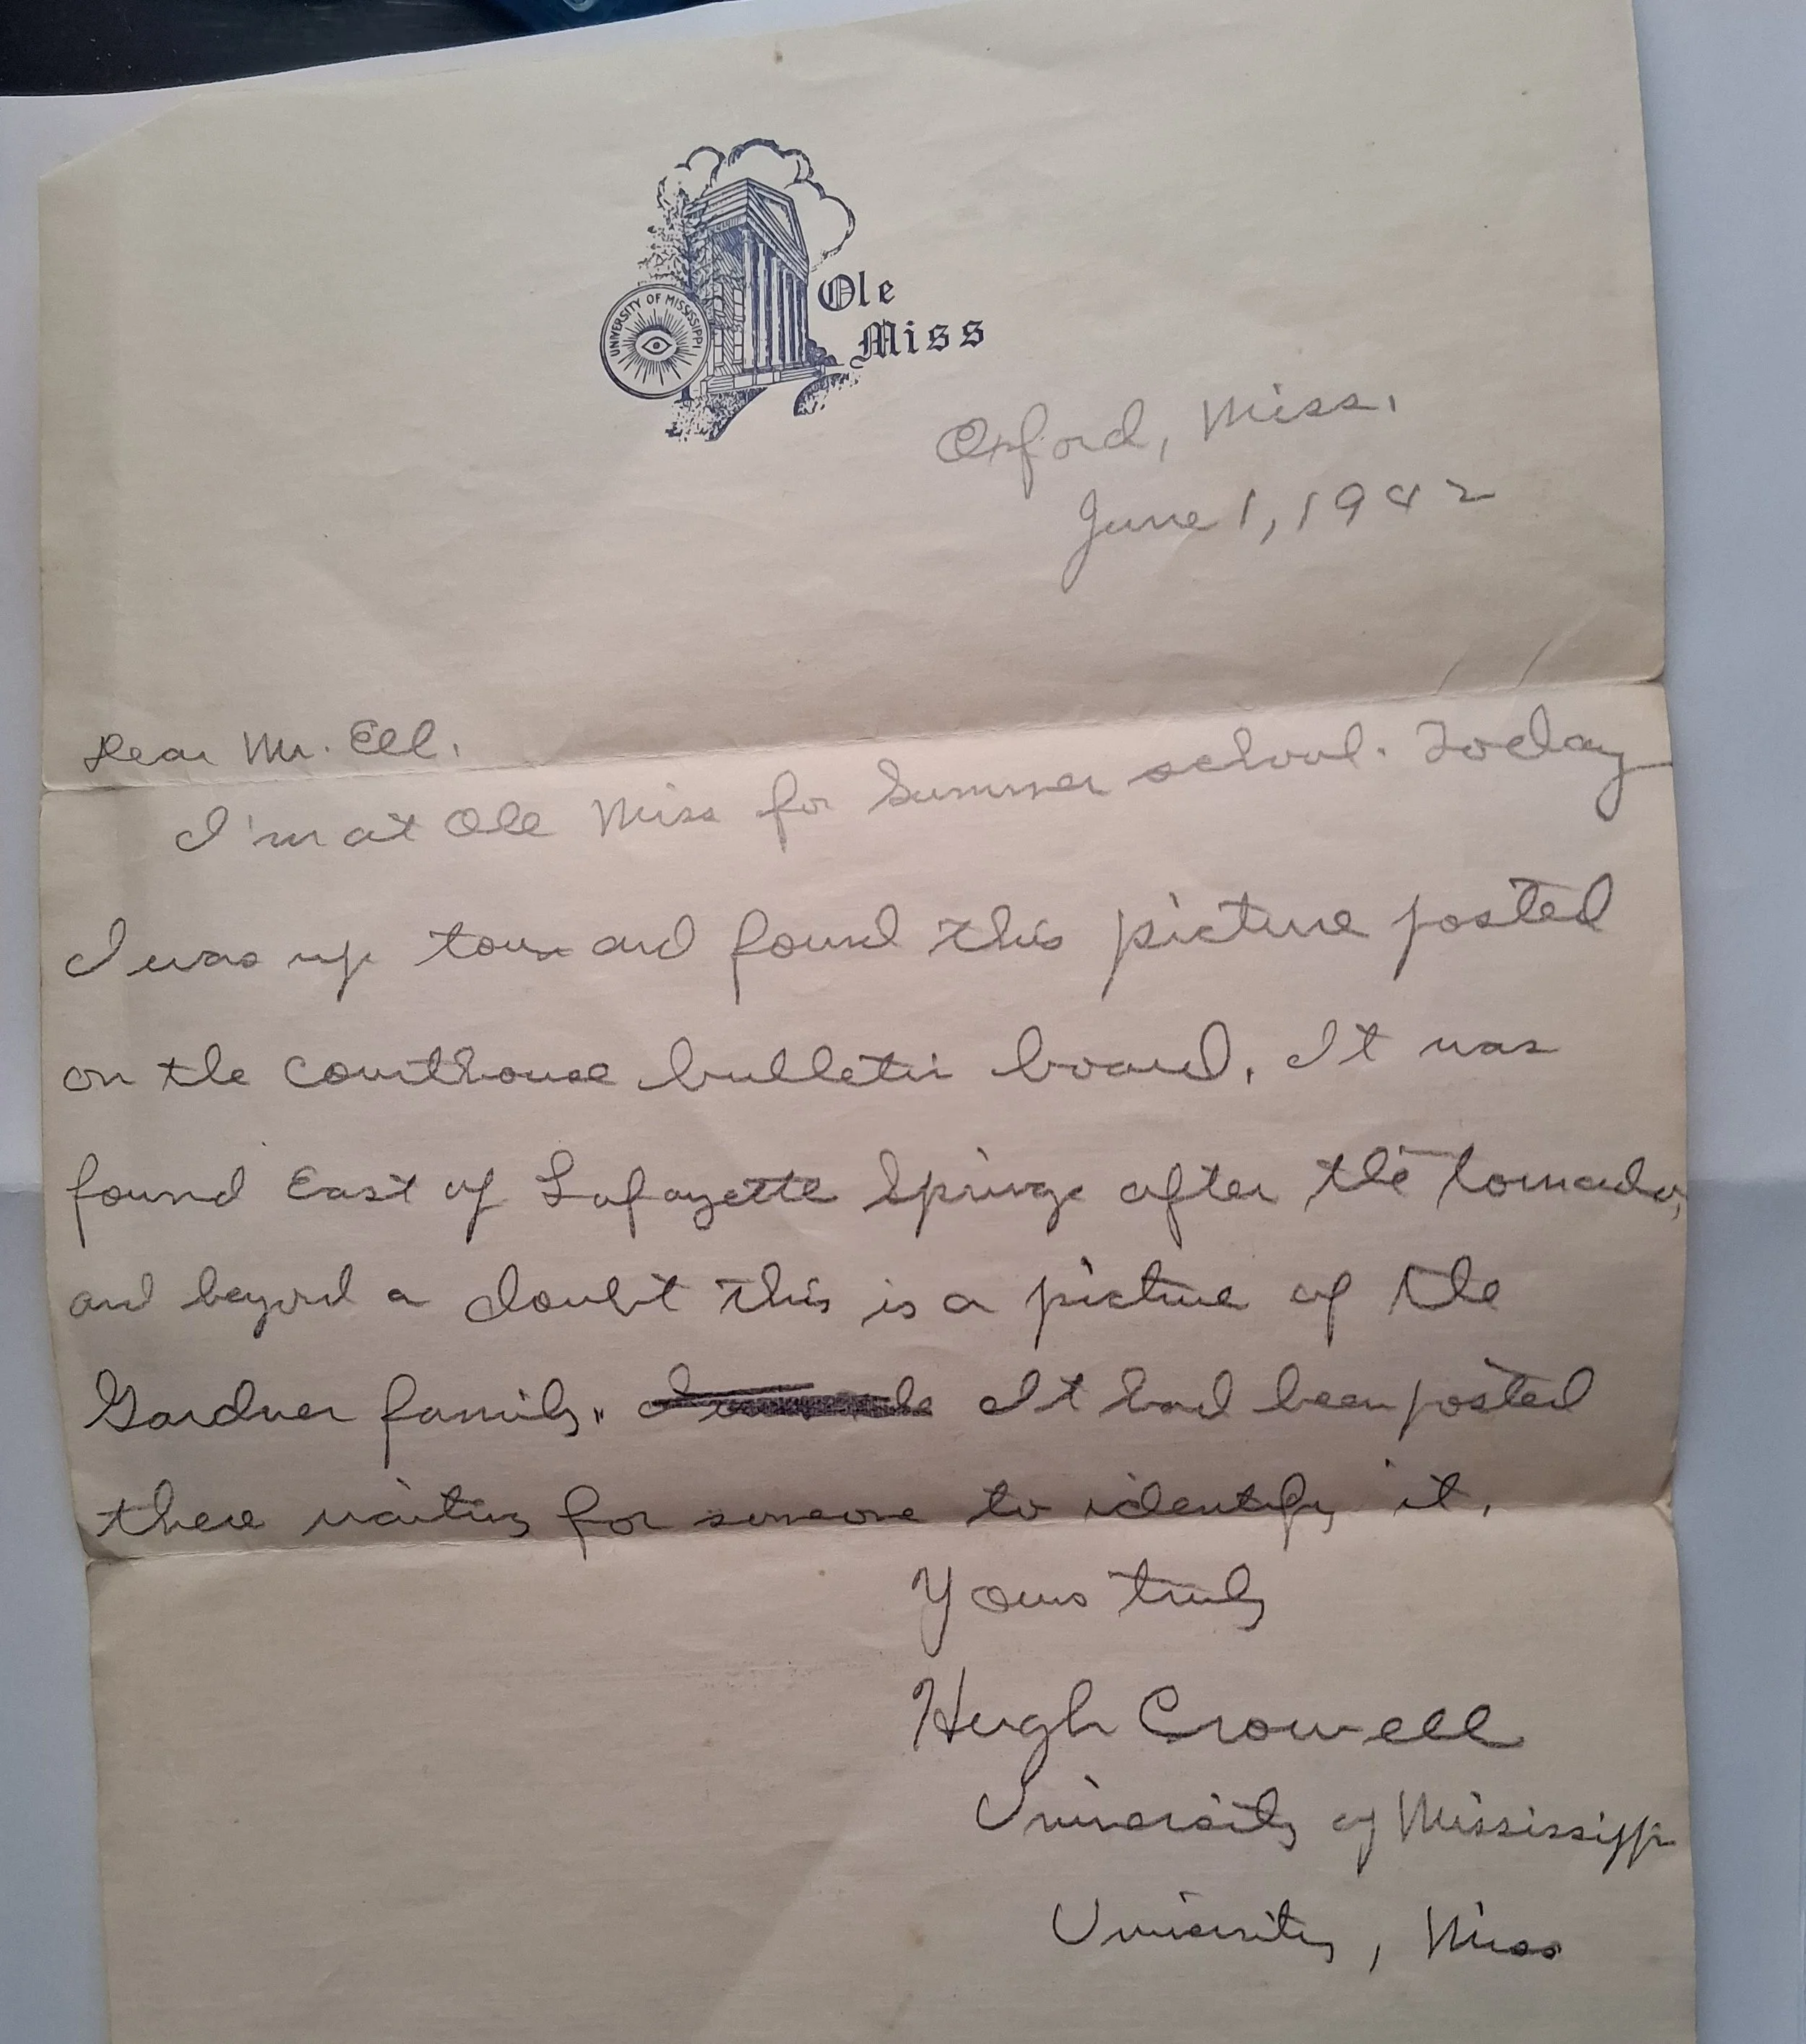 UNIVERSITY OF MISSISSIPPI
Ole
Miss
Oxford, Miss.
June 1, 1942
Dear Mr. Ell.
I'm at Ole Miss for Summer school. Today
I was up town and found this picture posted
on the courthouse bulletin board. It was
found East of Lafayette Springs after the tornado,
and beyond a doubt this is a picture of the
Gardner family. It had been posted
there waiting for someone to identify it.
Yours truly
Hugh Crowell
University of Mississippi
University, Miss